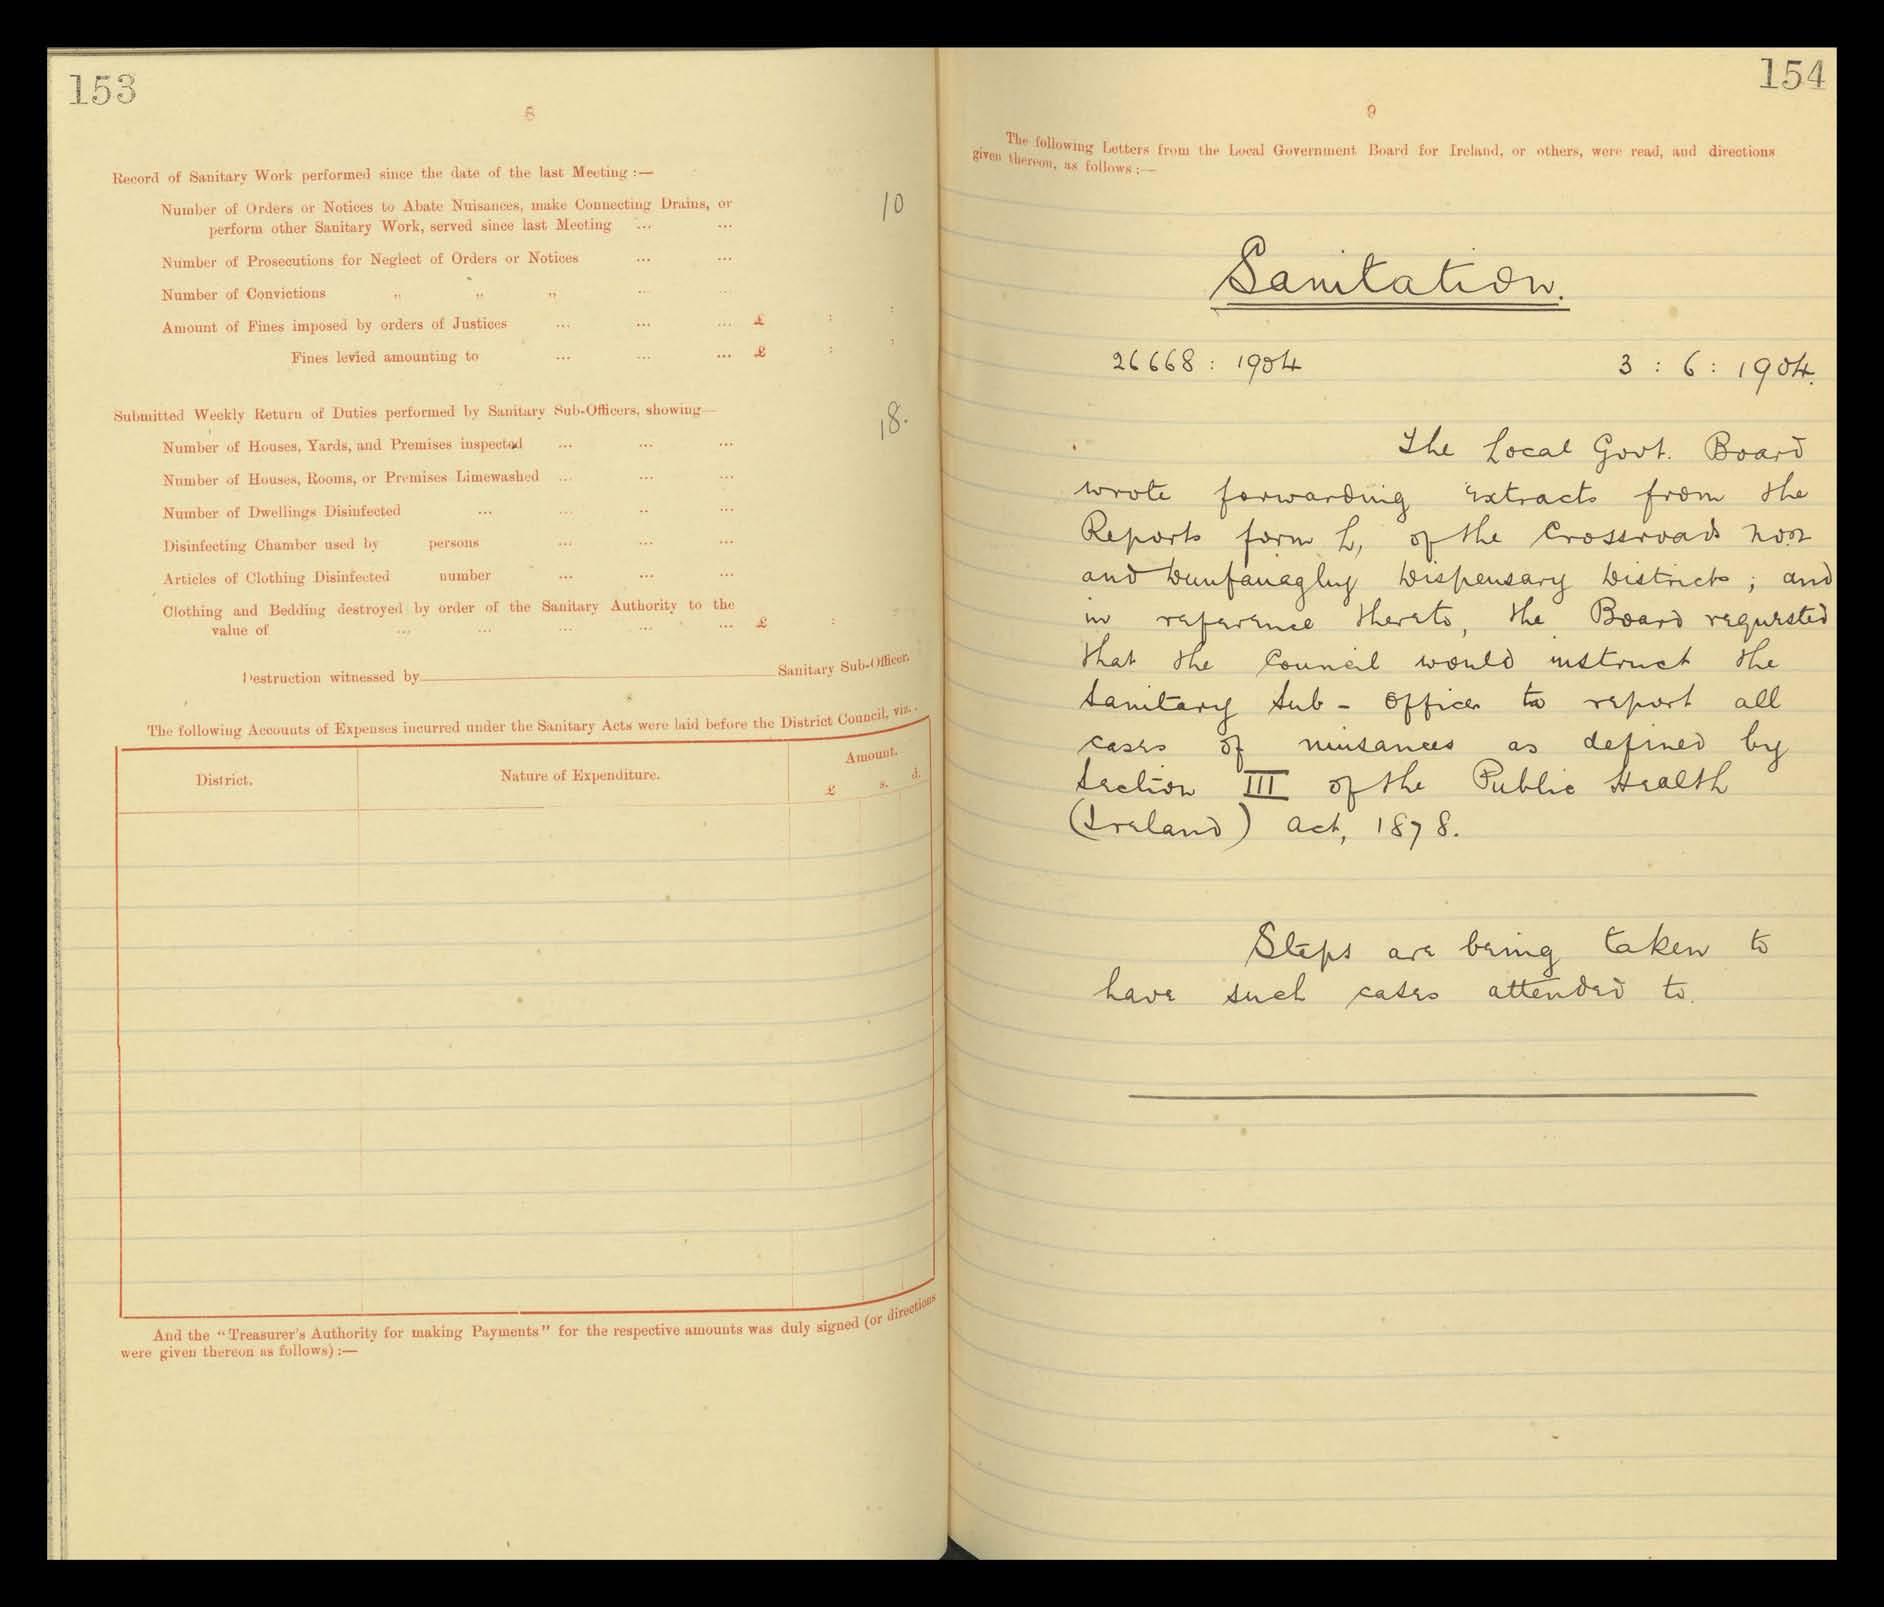 153
8
Record of Sanitary Work performed since the date of the last Meeting :—
Number of Orders or Notices to Abate Nuisances, make Connecting Drains, or
perform other Sanitary Work, served since last Meeting ... ... 10
Number of Prosecutions for Neglect of Orders or Notices ... ...
Number of Convictions „ „ „ ... ...
Amount of Fines imposed by orders of Justices ... ... ... £ : :
Fines levied amounting to ... ... ... £ : :
Submitted Weekly Return of Duties performed by Sanitary Sub-Officers, showing—
Number of Houses, Yards, and Premises inspected ... ... ... 18.
Number of Houses, Rooms, or Premises Limewashed ... ... ...
Number of Dwellings Disinfected ... ... ... ...
Disinfecting Chamber used by persons ... ... ...
Articles of Clothing Disinfected number ... ... ...
Clothing and Bedding destroyed by order of the Sanitary Authority to the
value of ... ... ... ... ... £ : :
Destruction witnessed by Sanitary Sub-Officer.
The following Accounts of Expenses incurred under the Sanitary Acts were laid before the District Council, viz. .
District. Nature of Expenditure. Amount.
£ s. d.
And the "Treasurer's Authority for making Payments" for the respective amounts was duly signed (or directions
were given thereon as follows) :—
154
9
The following Letters from the Local Government Board for Ireland, or others, were read, and directions
given thereon, as follows :—
Sanitation.
26668 : 1904 3 : 6 : 1904.
The Local Govt. Board
wrote forwarding extracts from the
Reports form L, of the Crossroads No2
and Dunfanaghy Dispensary Districts ; and
in reference thereto, the Board requested
that the Council would instruct the
Sanitary Sub - Officer to report all
cases of nuisances as defined by
Section III of the Public Health
(Ireland) Act, 1878.
Steps are being taken to
have such cases attended to.